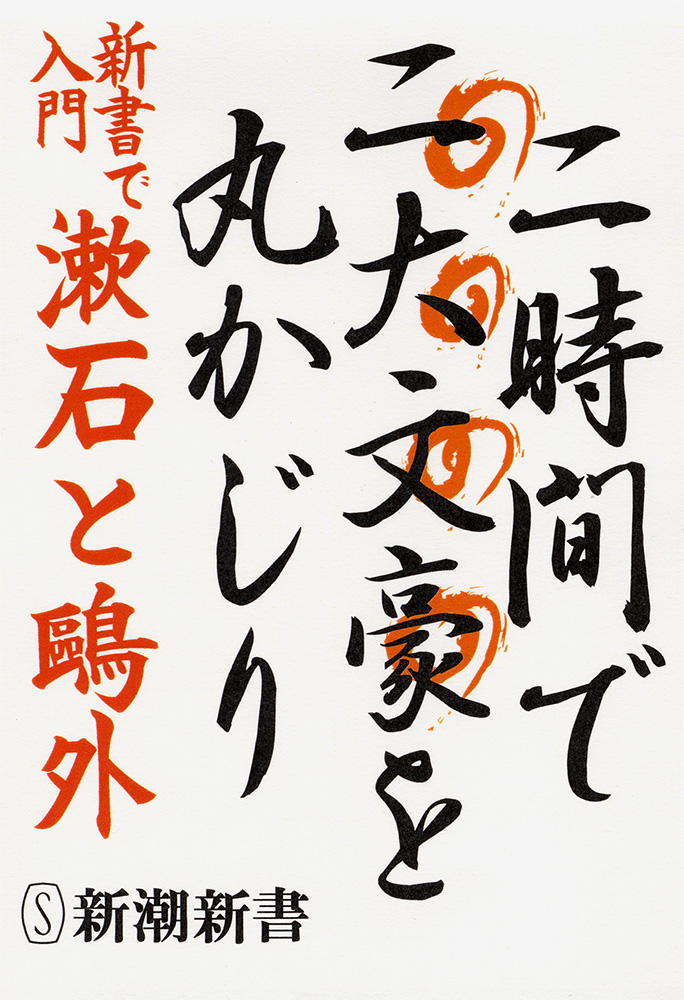 二時間で
二大文豪を
丸かじり
新書で
入門
漱石と鷗外
S 新潮新書